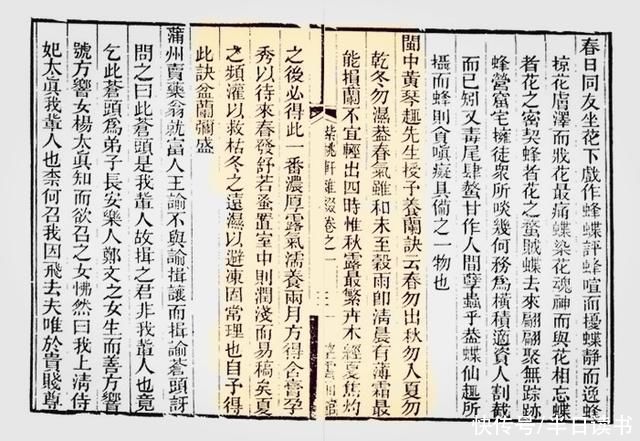 春日同友坐花下戲作蜂蝶評蜂喧而擾蝶靜而遊蜂
掠花膚澤而戕花最痛蝶染花魂神而與花相忘蝶
者花之密契蜂者花之蟊賊蝶去來翩翩聚無踪跡
蜂營窟宅擁徒衆所啖幾何務為橫積適資人割截
而已矧又毒尾肆螫甘作人間孽蟲乎葢蝶仙趣所
攝而蜂則貪嗔癡具備之一物也
閩中黃琴趣先生授予養蘭訣云春勿出秋勿入夏勿
乾冬勿濕葢春氣雖和未至穀雨卽清晨有薄霜最
能損蘭不宜輕出四時惟秋露最繁卉木經夏焦灼
紫桃軒雜綴卷之一
之後必得此一番濃厚露氣濡養兩月方得含膏孕
秀以待來春發舒若蚤置室中則潤淺而易槁矣夏
之頻灌以救枯冬之遠濕以避凍固常理也自予得
此訣盆蘭彌盛
蒲州賣藥翁就富人王諭不與諭揖讓而揖諭蒼頭訝
問之曰此蒼頭是我輩人故揖之君非我輩人也竟
乞此蒼頭爲弟子長安樂人鄭文之女生而善方響
號方響女楊太真知而欲召之女怫然曰我上清侍
妃太真我輩人也柰何召我因飛去夫唯於貴賤尊
快传号/半日读书